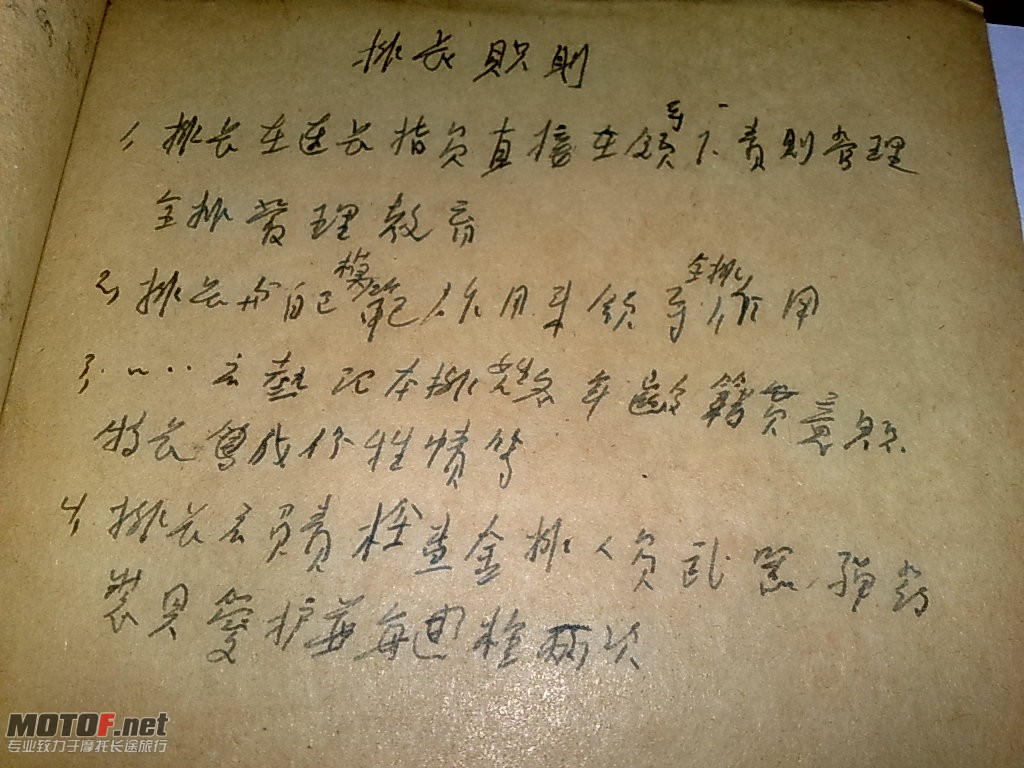 排长职则
1, 排长在连长指员直接在领导下责则管理
全排管理教育
2, 排长为自己模范作用来领导全排作用
3, ……去熟记本排姓名年龄籍贯意
特长 成份性情等
4, 排长去负责检查全排人员武器弹药
装具爱护并每周检两次
MOTOF.net
专业致力于摩托长途旅行